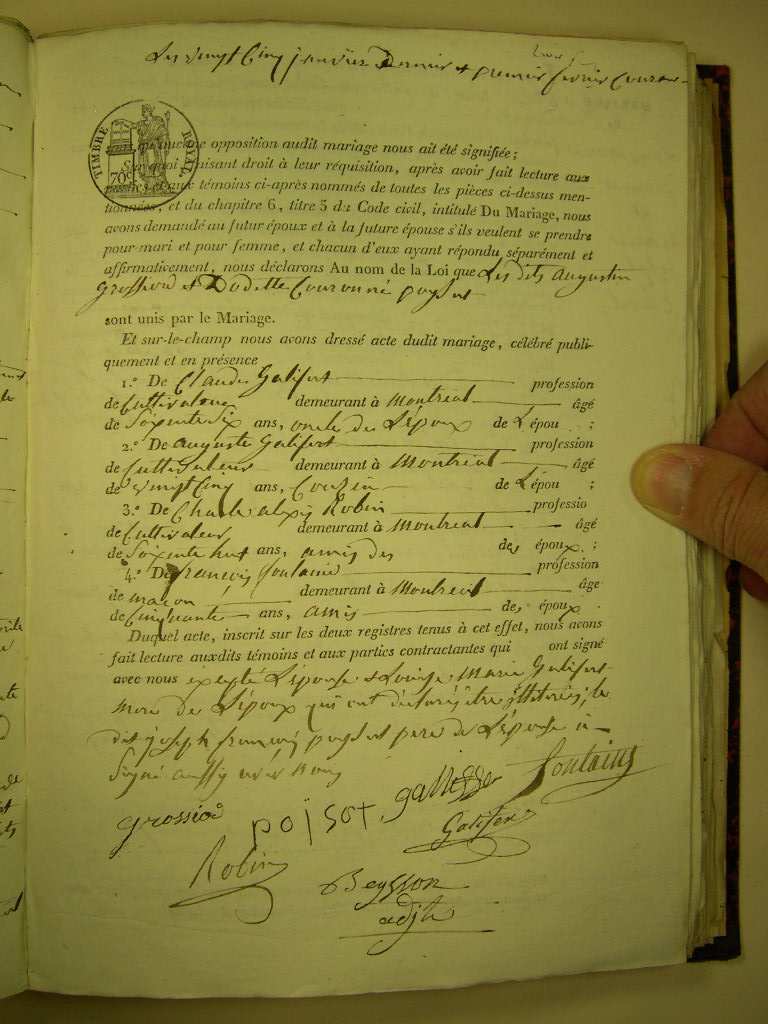 Les vingt Cinq janvier Dernier et premier fevrier Courant
TIMBRE ROYAL
70c
opposition audit mariage nous ait été signifiée;
faisant droit à leur réquisition, après avoir fait lecture aux
parties et aux témoins ci-après nommés de toutes les pièces ci-dessus men-
tionnées, et du chapitre 6, titre 5 du Code civil, intitulé Du Mariage, nous
avons demandé au futur époux et à la future épouse s'ils veulent se prendre
pour mari et pour femme, et chacun d'eux ayant répondu séparément et
affirmativement, nous déclarons Au nom de la Loi que Les dits Augustin
grossiord et Odette Couronné
sont unis par le Mariage.
Et sur-le-champ nous avons dressé acte dudit mariage, célébré publi-
quement et en présence
1.º De Claude Galifert profession
de Cultivateur demeurant à Montreal âgé
de Soixente Six ans, oncle de L'époux de L'épou ;
2.º De auguste Galifert profession
de Cultivateur demeurant à Montreal âgé
de vingt Cinq ans, Couzin de L'épou ;
3.º De Charle alexis Robin professio
de Cultivateur demeurant à Montreal âgé
de Soixente huit ans, amis des des époux ;
4.º De françois fontaine profession
de maçon demeurant à Montreal âge
de Cinquante ans, amis des époux
Duquel acte, inscrit sur les deux registres tenus à cet effet, nous avons
fait lecture auxdits témoins et aux parties contractantes qui ont signé
avec nous excepté L'épouse et Louise Marie Galifert
Mere de L'époux qui ont déclaré être illiterés, le
dit joseph françois pere de L'épouse a
Signé aussy avec nous
grossiord poïsot, galiffer fontaine
Galifer
Robin
Beysson
adjt